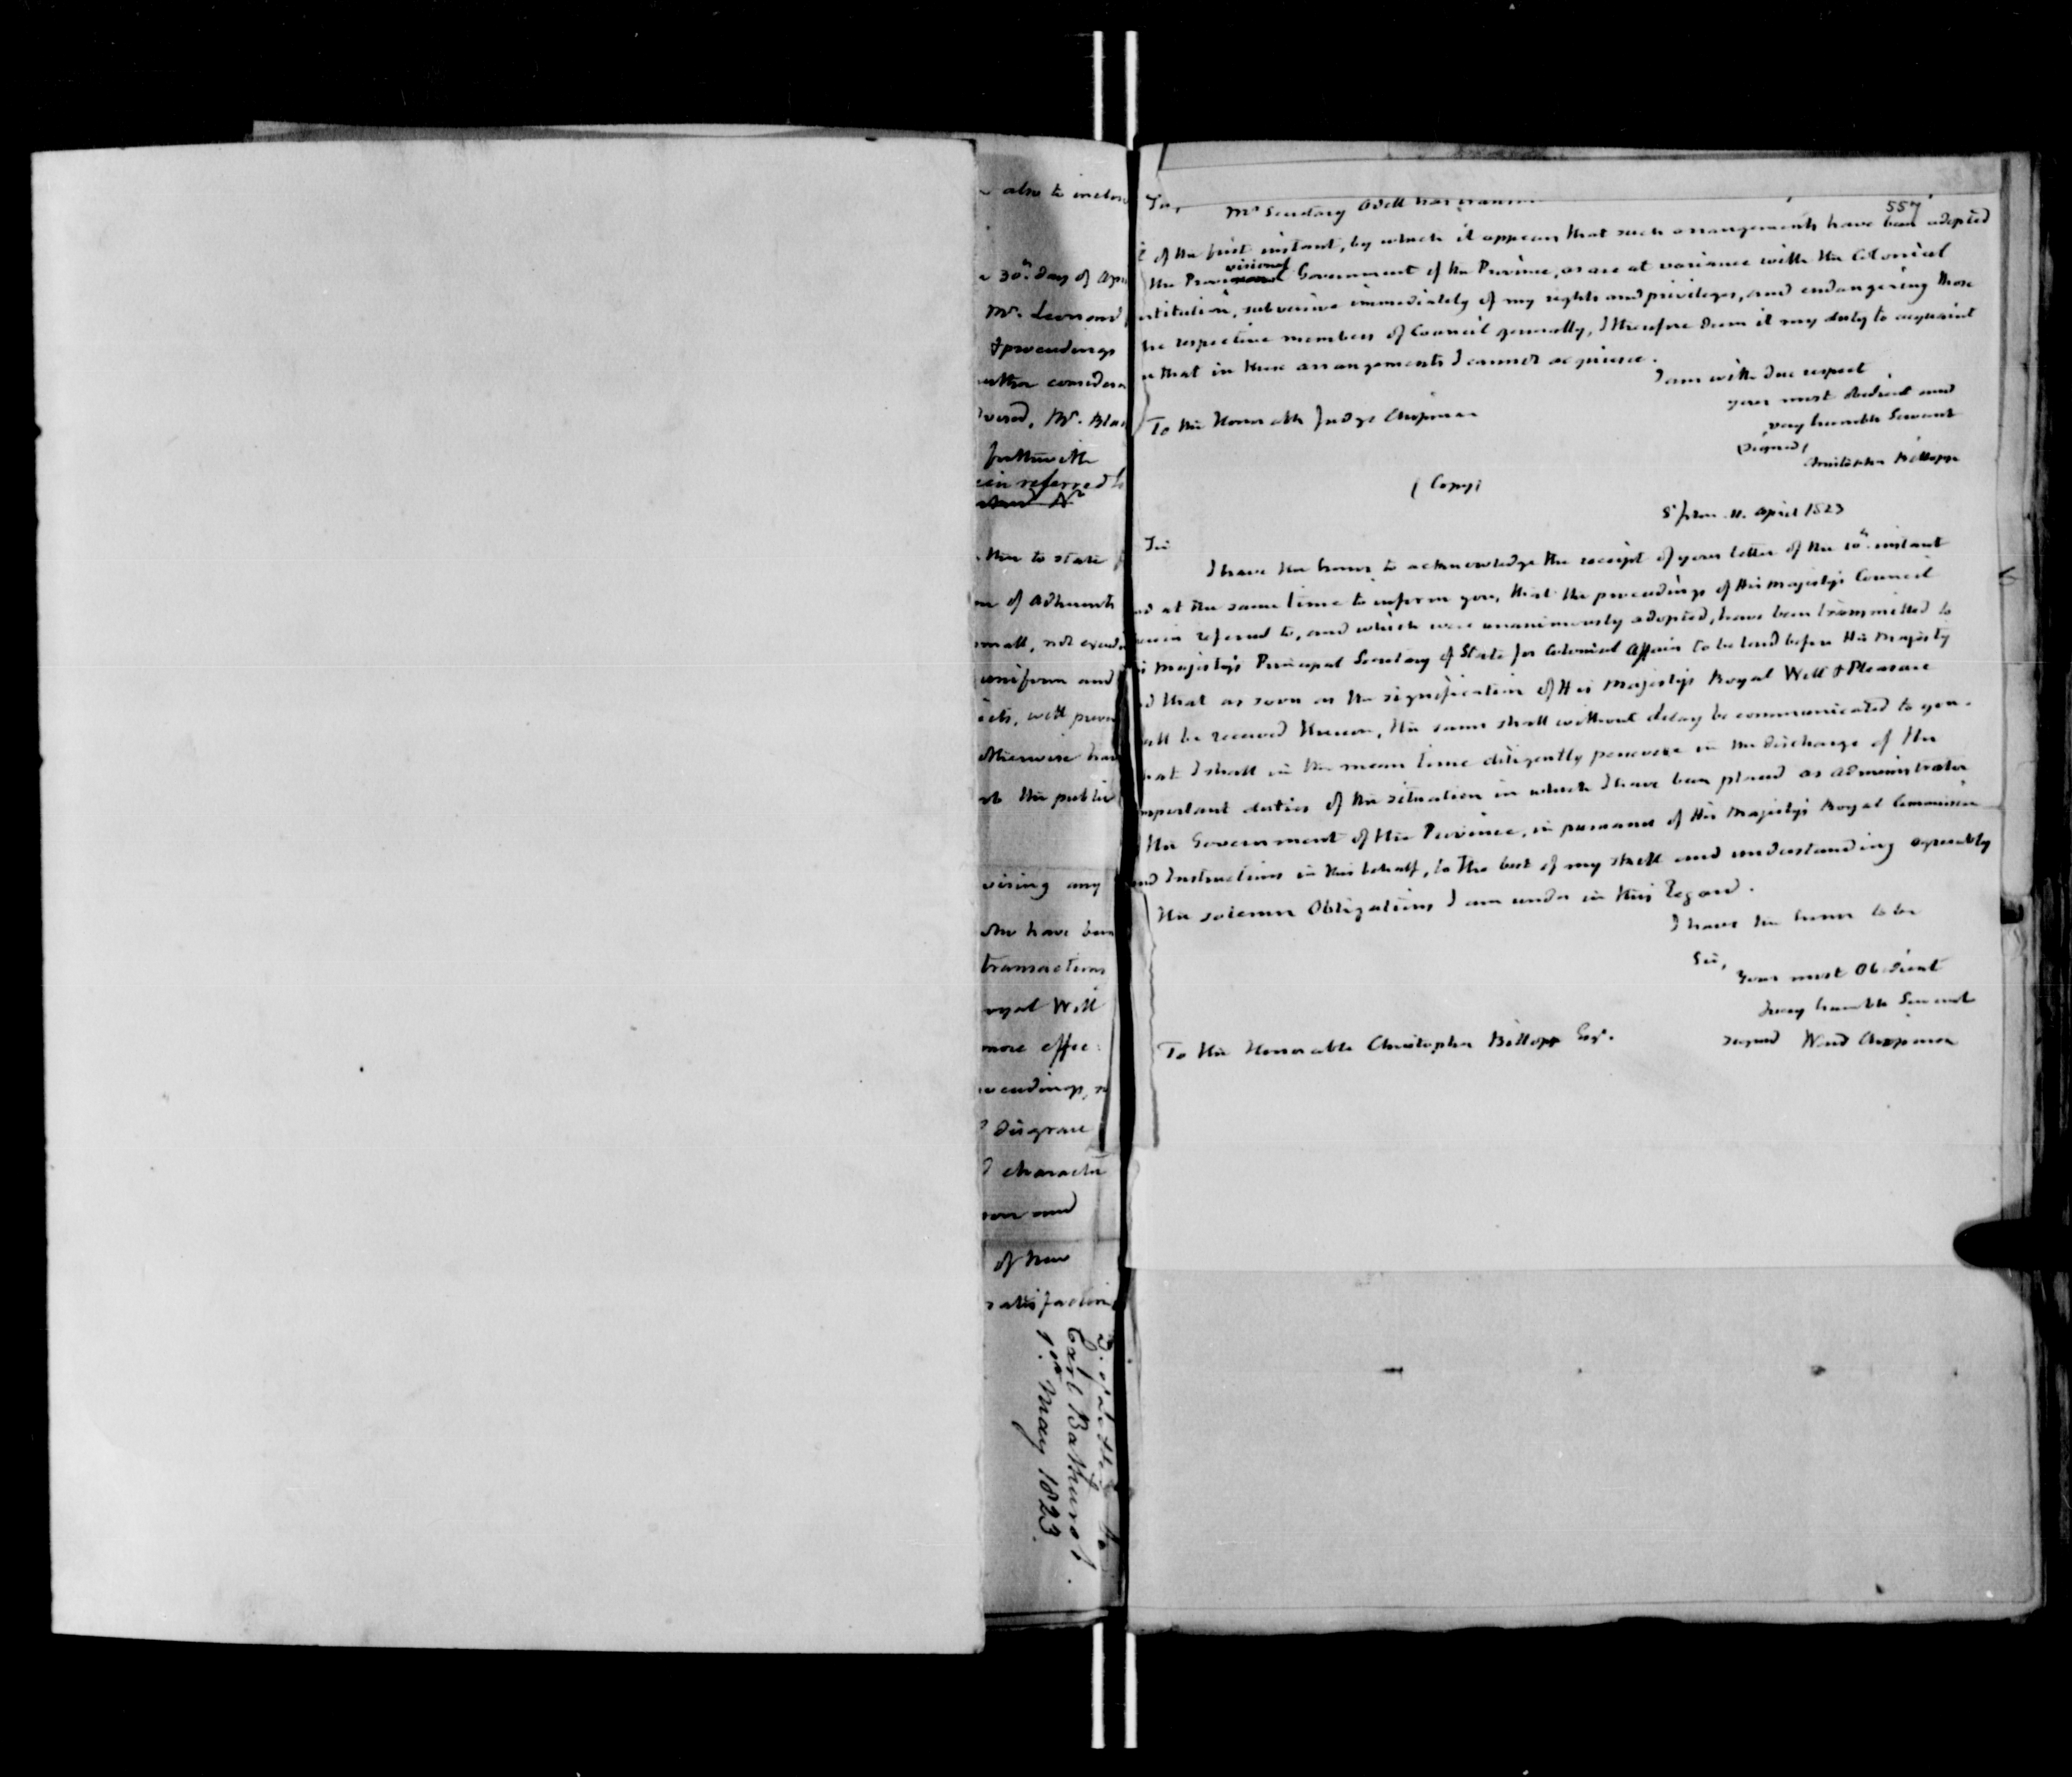 also to inclose
30th day of Apr
Mr. Leonard
& proceedings
further considera
Mr. Blis
forthwith
ein referred to
then to state
of Adherents
small, not exceed
uniform and
will preve
otherwise have
the public
vising any
who have been
transactions
oyal Will
more effec:
oceedings, so
disgrace
character
and
of New
satisfaction
Earl Bathurst.
1st May 1823.
557
Sir, Mr Secretary Odell has
of the first instant, by which it appears that such arrangements have been adopted
the Provisional Government of the Province, as are at variance with the Colonial
nstitution, subversive immediately of my rights and privileges, and endangering those
he respective members of Council generally, I therefore deem it my duty to acquaint
u that in these arrangements I cannot acquiesce.
I am with due respect
your most obedient and
very humble Servant
(Signed)
Christopher Billopp
To the Honorable Judge Chipman
(Copy)
St John 11. April 1823
Sir
I have the honor to acknowledge the receipt of your letter of the 10th instant
nd at the same time to inform you, that the proceedings of His Majesty's Council
rein referred to, and which were unanimously adopted, have been transmitted to
is Majesty's Principal Secretary of State for Colonial Affairs to be laid before His Majesty
nd that as soon as the signification of His Majesty's Royal Will & Pleasure
all be received thereon, the same shall without delay be communicated to you.
hat I shall in the mean time diligently persevere in the discharge of the
mportant duties of the situation in which I have been placed as Administrator
the Government of the Province, in pursuance of His Majesty's Royal Commission
and Instructions in this behalf, to the best of my skill and understanding agreeably
the solemn Obligations I am under in this Regard.
I have the honor to be
Sir,
Your most Obedient
& very humble Servant
signed Ward Chipman
To the Honorable Christopher Billopp Esqr.